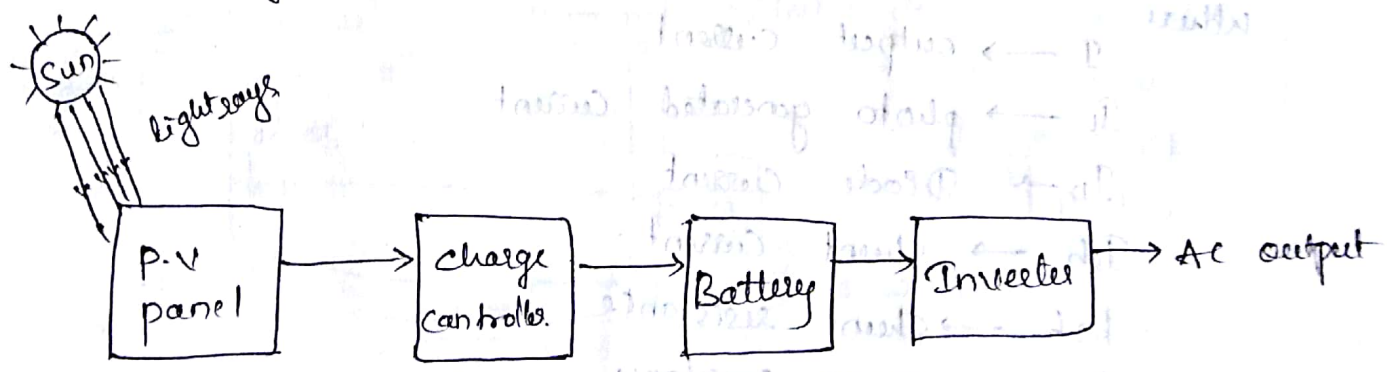 Sun
light rays
P.V
panel
charge
Controller.
Battery
Inverter
AC output